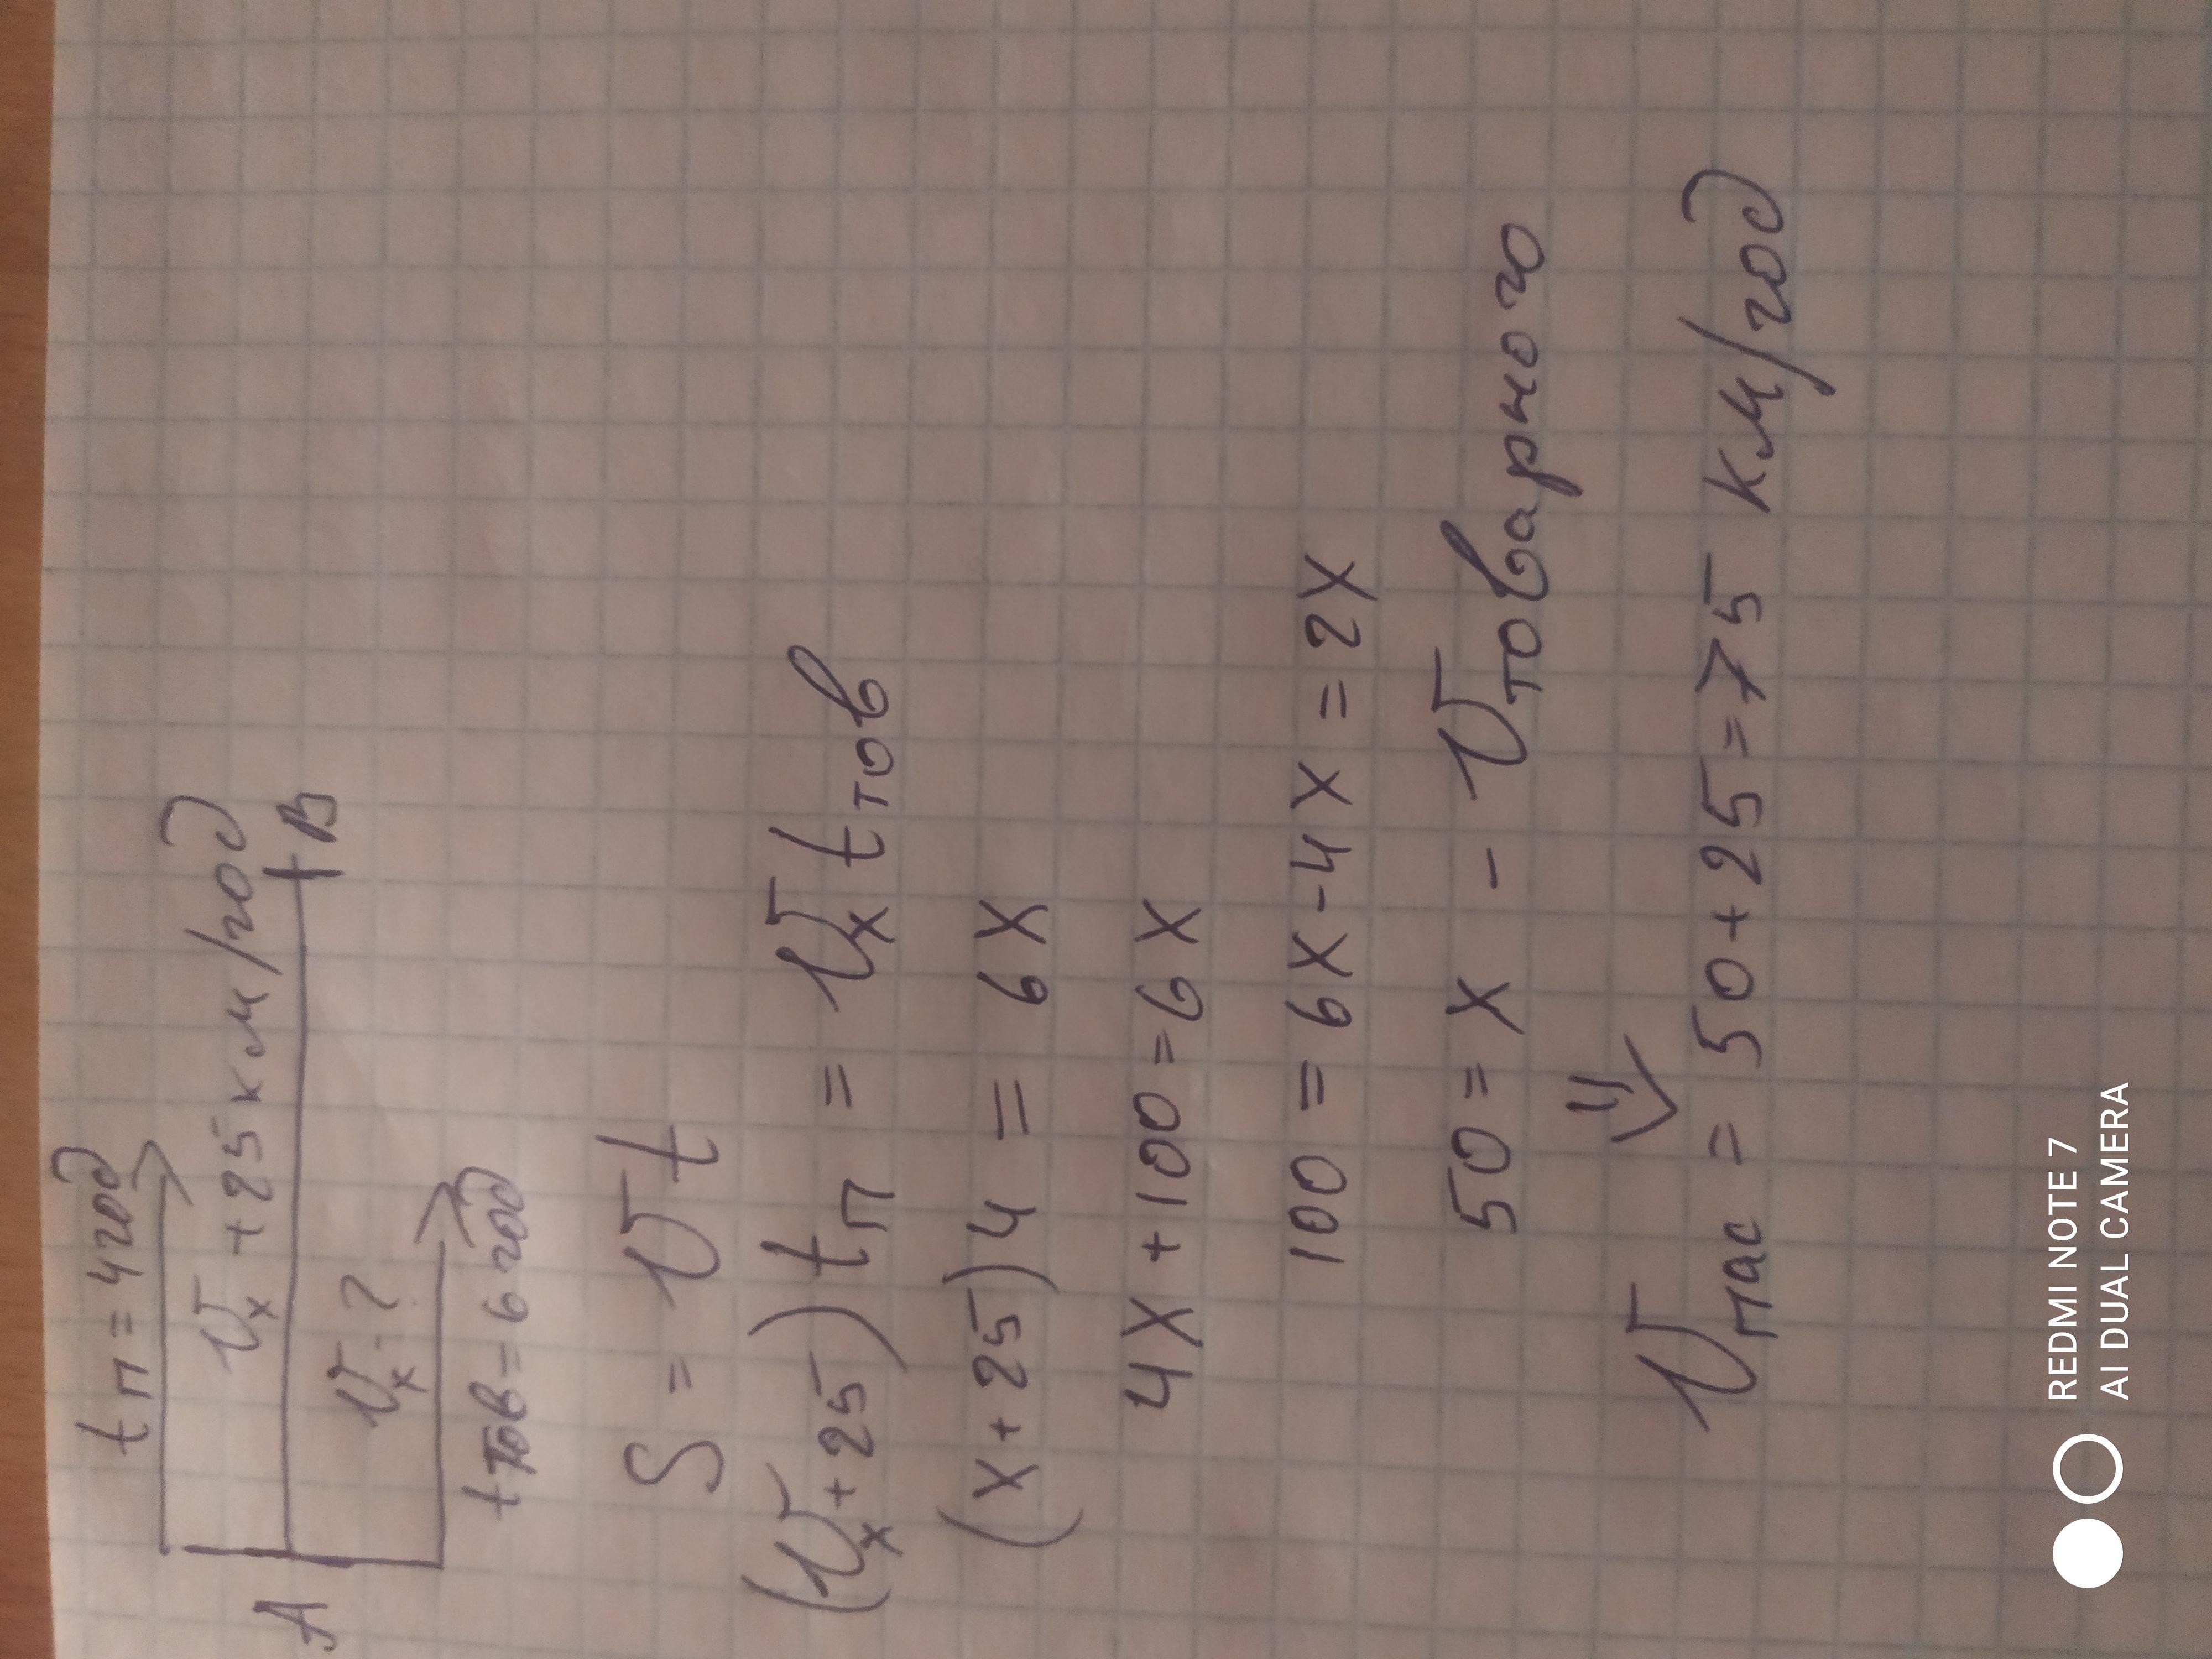 tп = 4год
Vx + 25 км/год
A B
Vx - ?
tтов = 6 год
S = Vt
(Vx + 25) tп = Vx tтов
(x + 25) 4 = 6x
4x + 100 = 6x
100 = 6x - 4x = 2x
50 = x - Vтоварного
⇓
Vпас = 50 + 25 = 75 км/год
REDMI NOTE 7
AI DUAL CAMERA